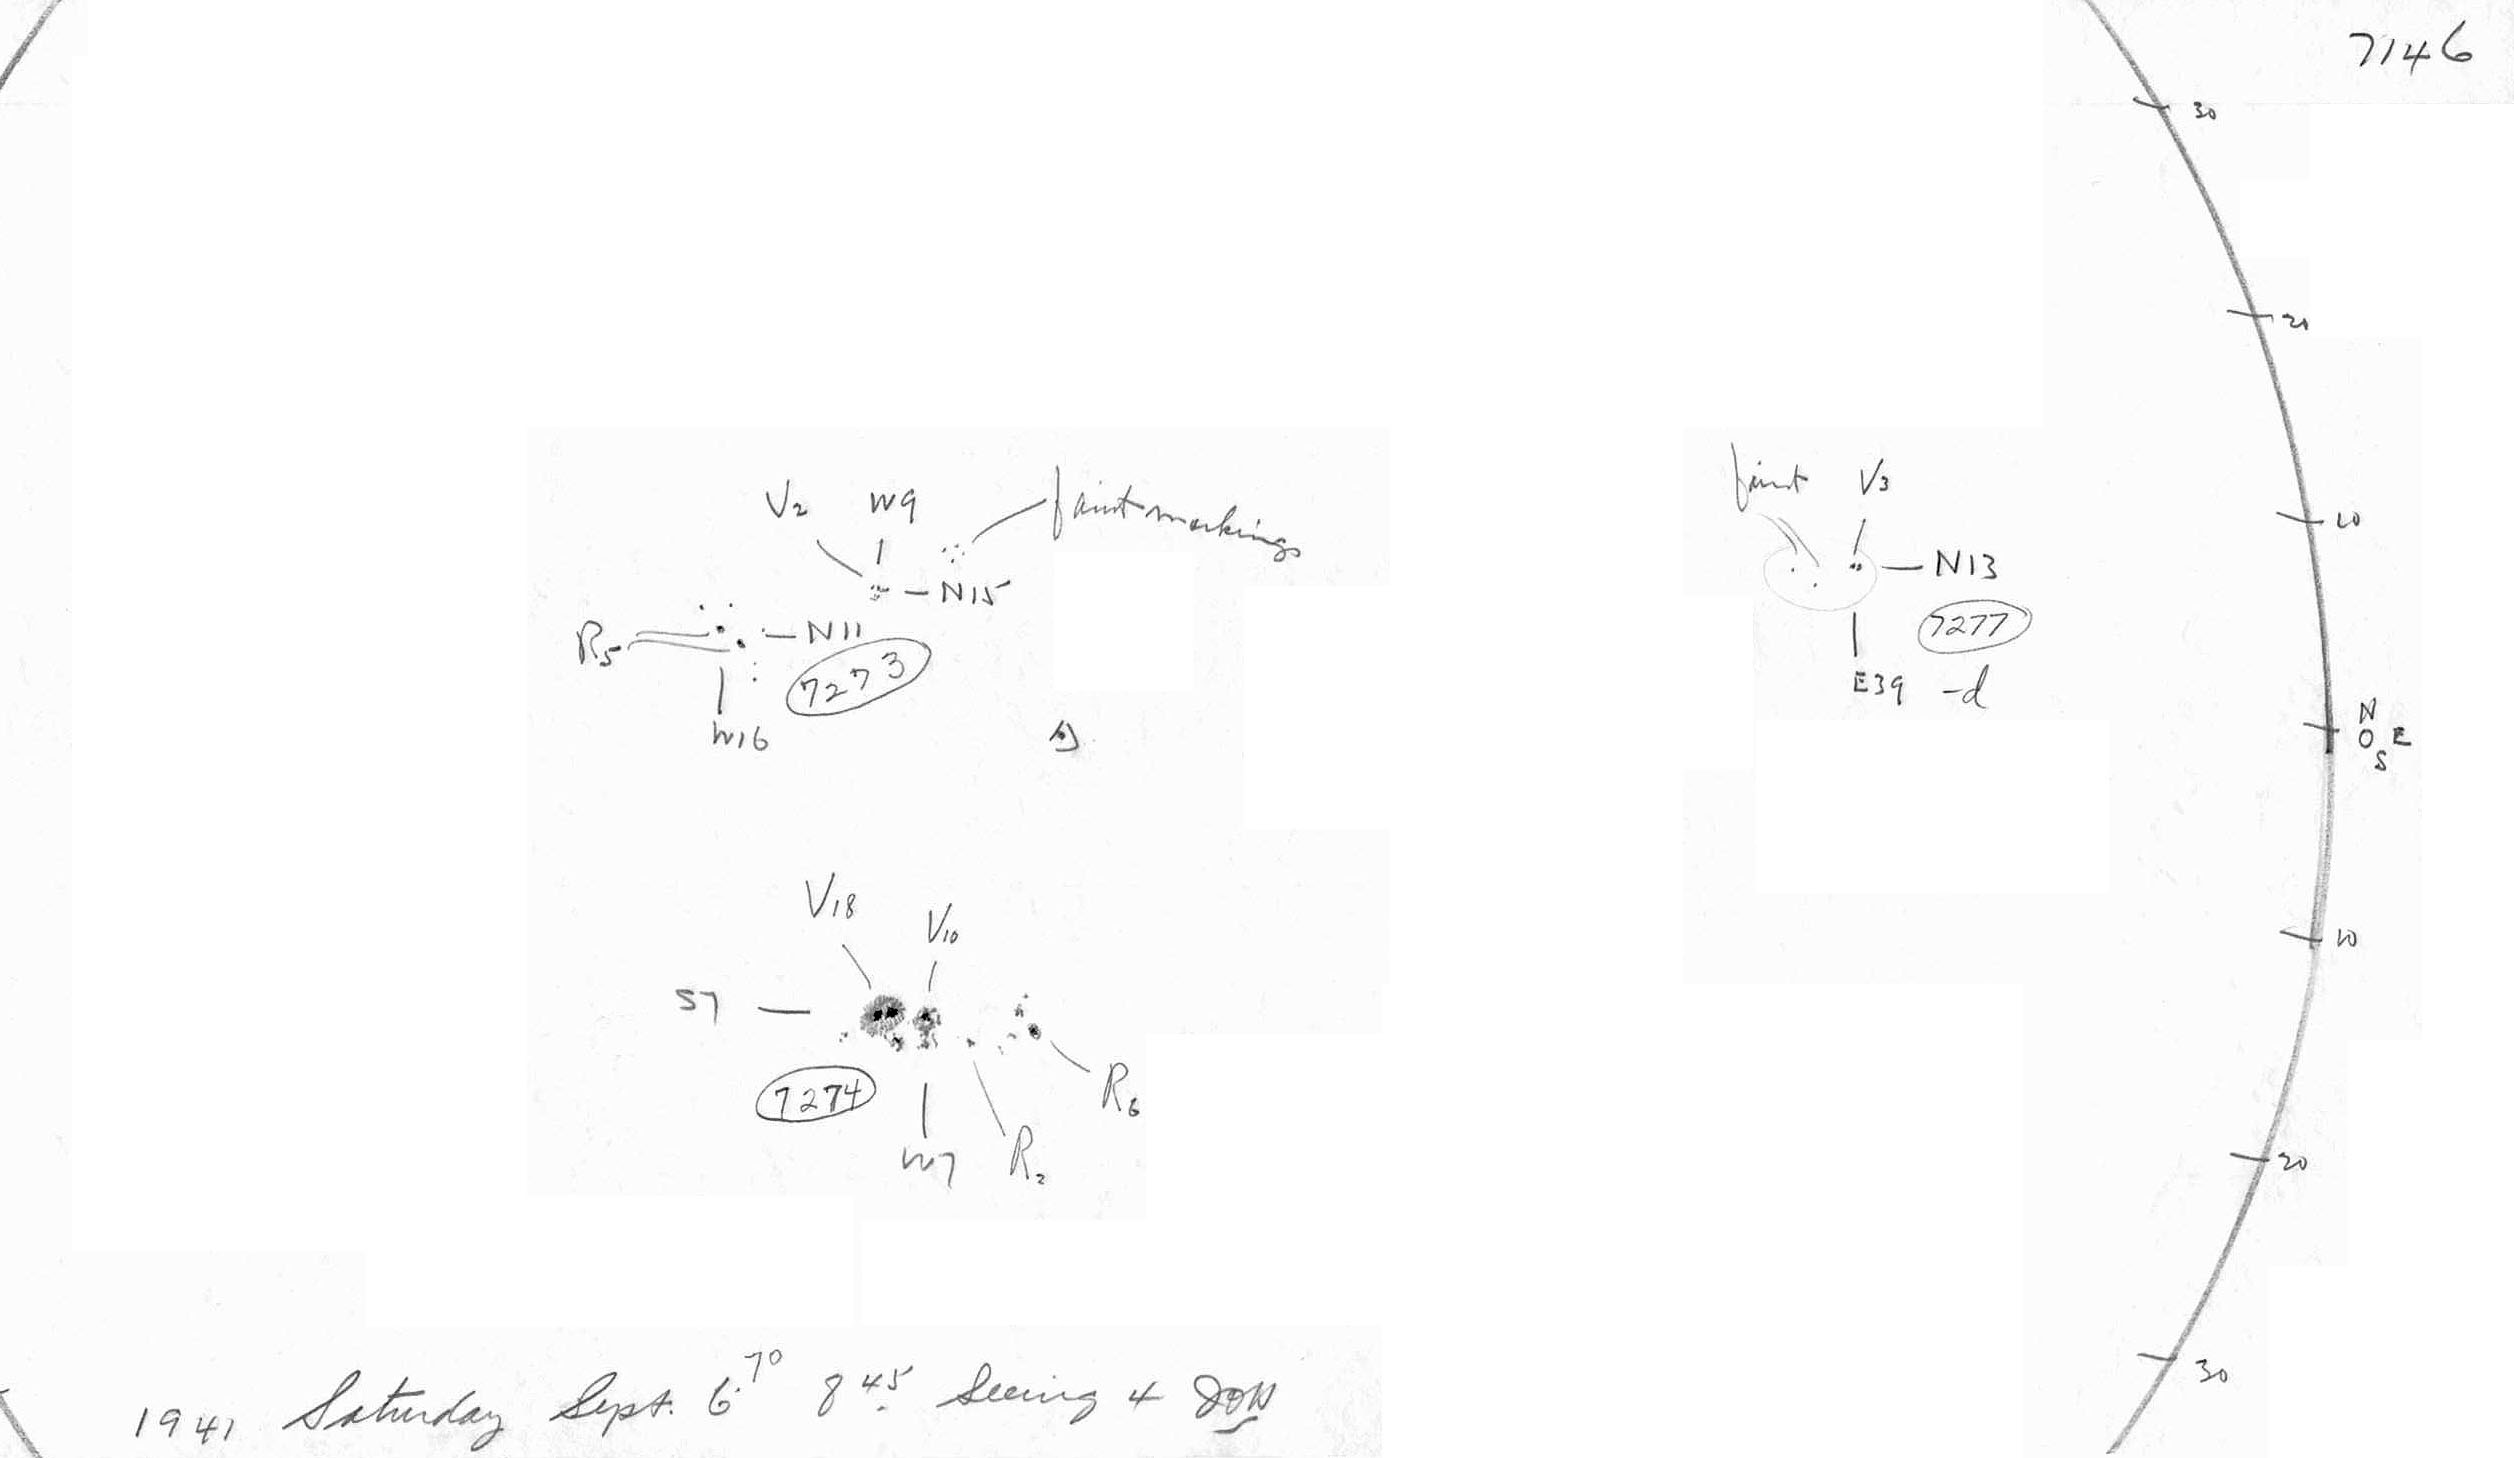 7146
30
20
10
N
O E
S
10
20
30
V2 W9 faint markings
N15
R5 N11
7273
W16
faint V3
N13
7277
E39 -d
V18
V10
S7
7274
R6
W7 R2
1941 Saturday Sept. 6.70 8 45 Seeing 4